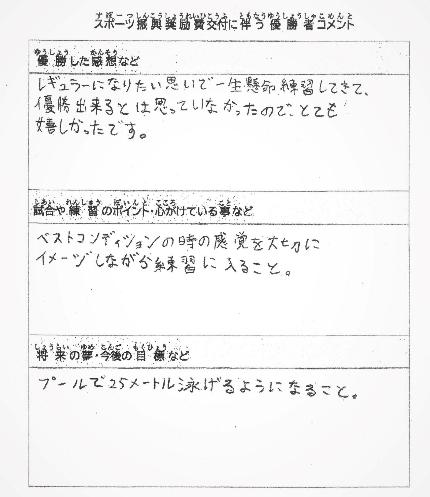 スポーツ振興奨励費交付に伴う優勝者コメント
優勝した感想など
レギュラーになりたい思いで一生懸命練習してきて、
優勝出来るとは思っていなかったので、とても
嬉しかったです。
試合や練習のポイント・心がけている事など
ベストコンディションの時の感覚を大切に
イメージしながら練習に入ること。
将来の夢・今後の目標など
プールで25メートル泳げるようになること。